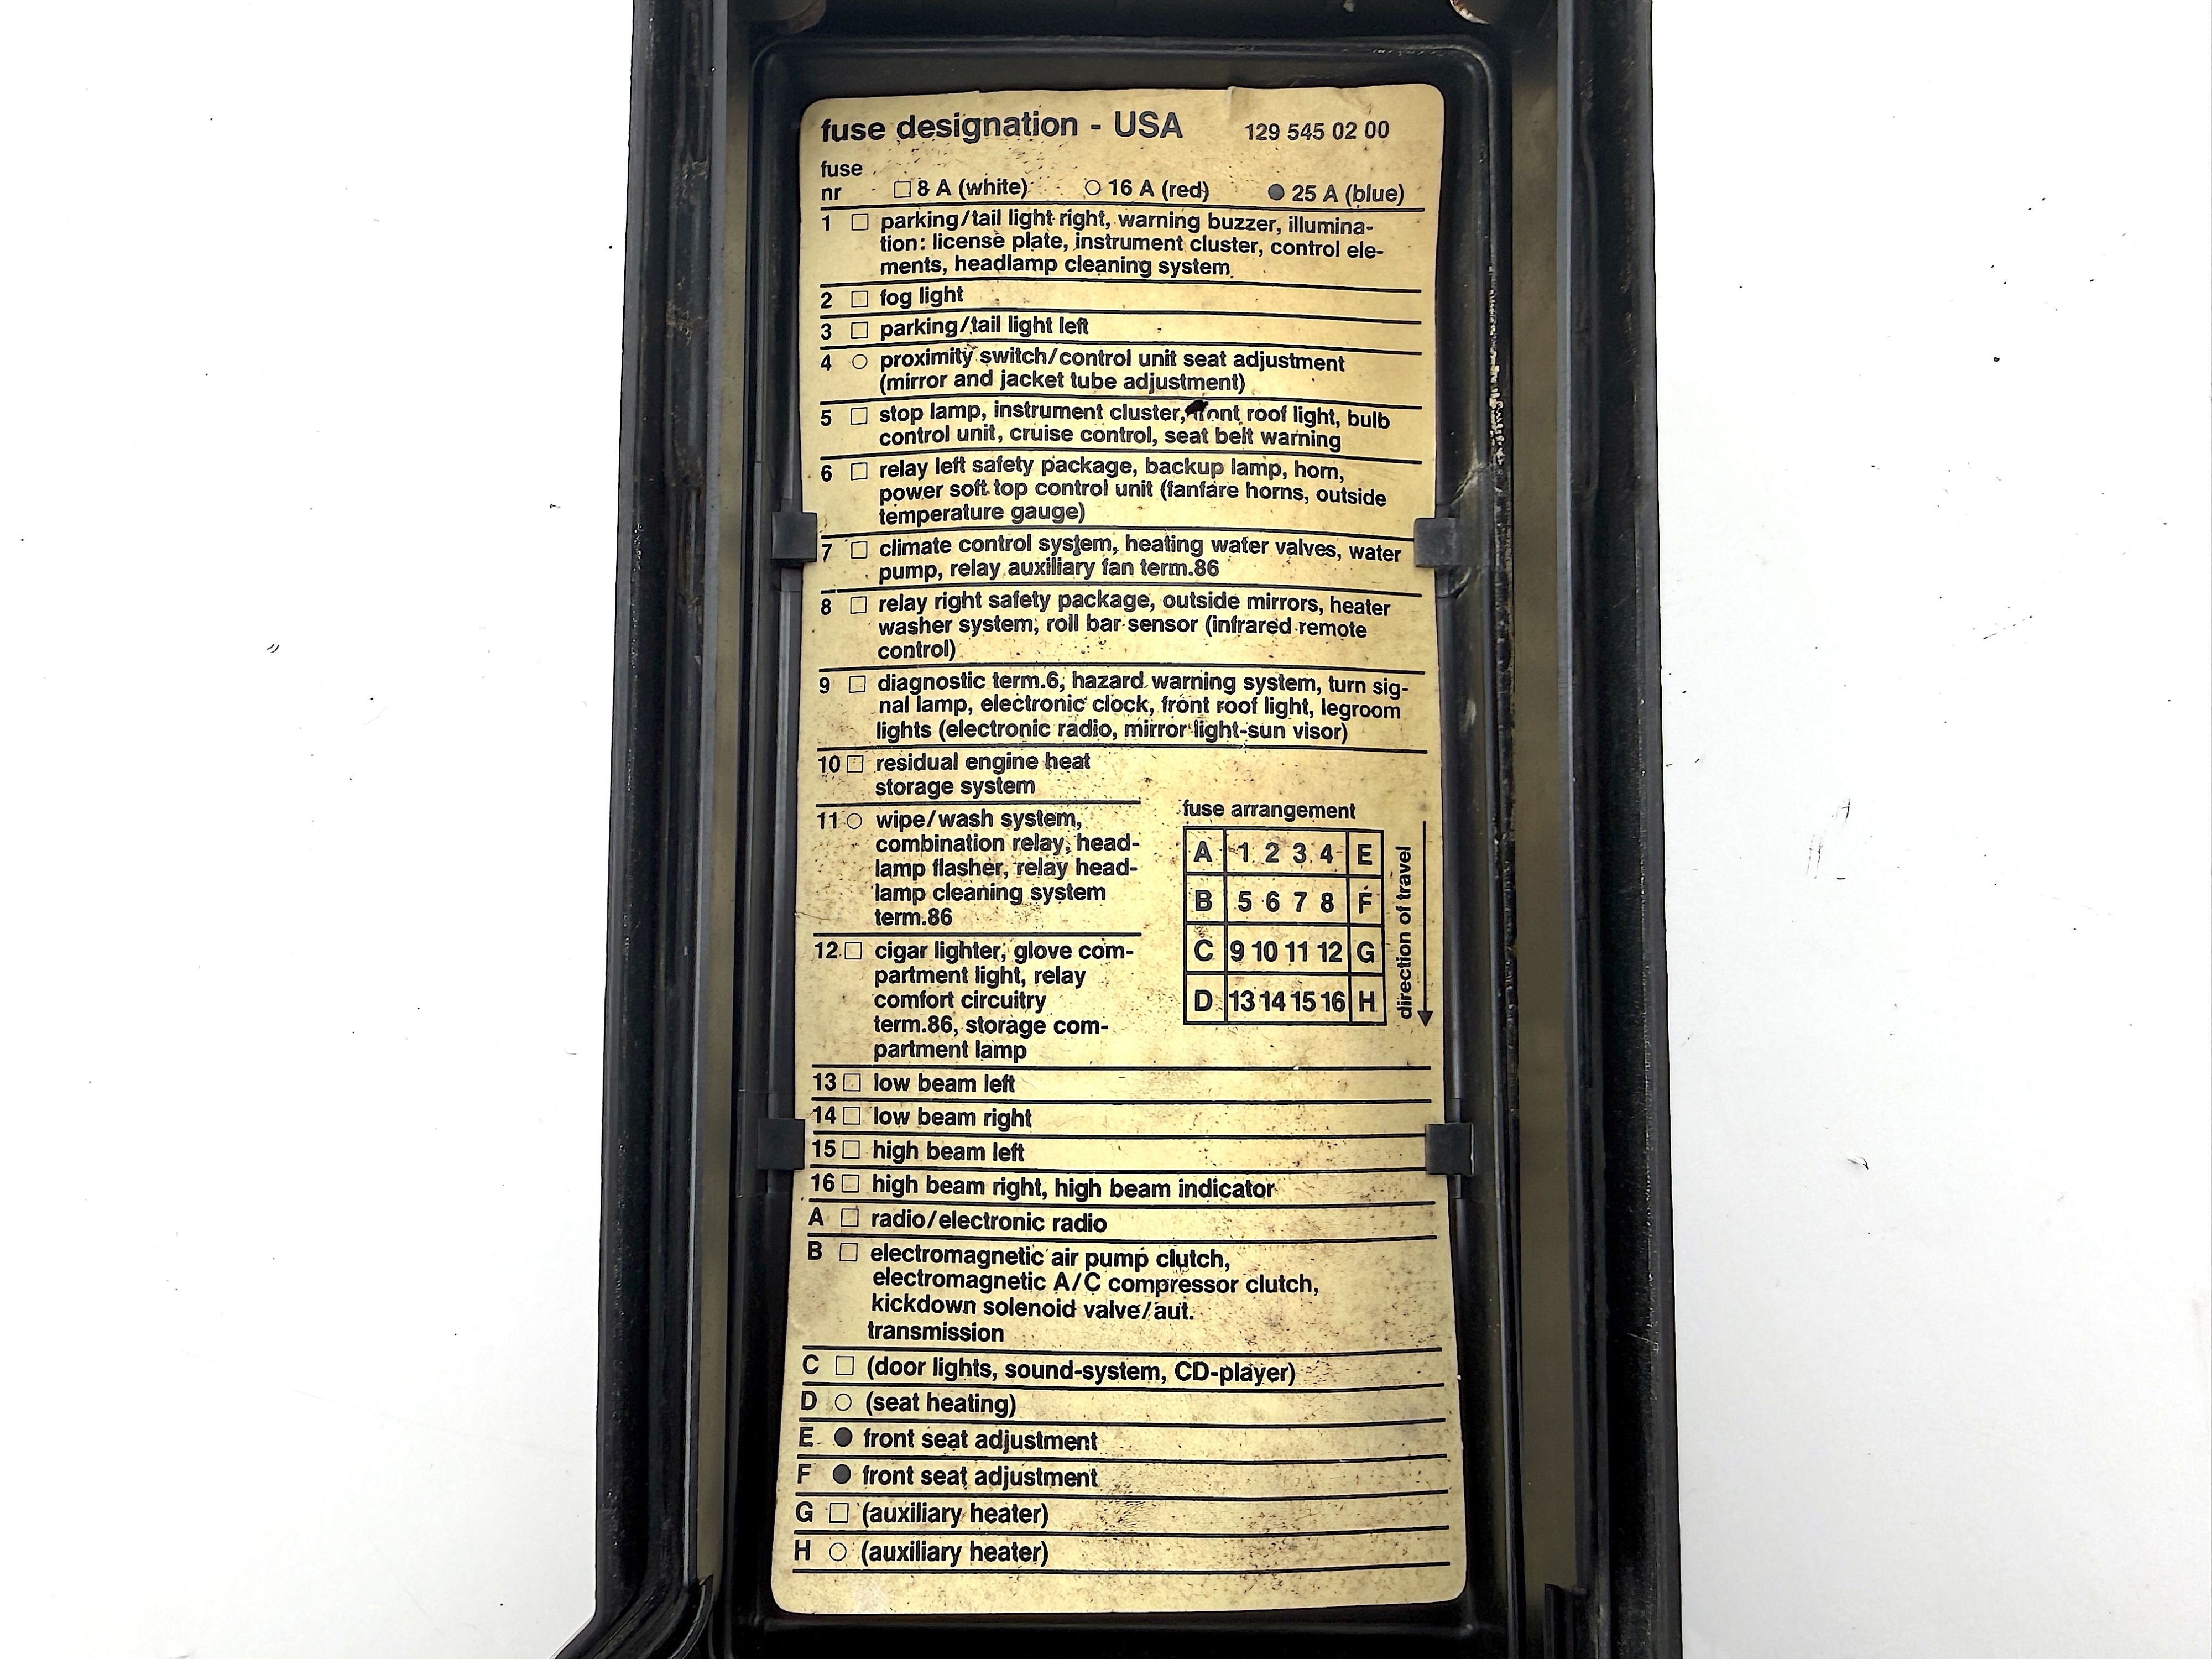 fuse designation - USA 129 545 02 00
fuse
nr □ 8 A (white) ○ 16 A (red) ● 25 A (blue)
1 □ parking/tail light right, warning buzzer, illumina-
tion: license plate, instrument cluster, control ele-
ments, headlamp cleaning system
2 □ fog light
3 □ parking/tail light left
4 ○ proximity switch/control unit seat adjustment
(mirror and jacket tube adjustment)
5 □ stop lamp, instrument cluster, front roof light, bulb
control unit, cruise control, seat belt warning
6 □ relay left safety package, backup lamp, horn,
power soft top control unit (fanfare horns, outside
temperature gauge)
7 □ climate control system, heating water valves, water
pump, relay auxiliary fan term.86
8 □ relay right safety package, outside mirrors, heater
washer system, roll bar sensor (infrared remote
control)
9 □ diagnostic term.6, hazard warning system, turn sig-
nal lamp, electronic clock, front roof light, legroom
lights (electronic radio, mirror light-sun visor)
10 □ residual engine heat
storage system
11 ○ wipe/wash system,
combination relay, head-
lamp flasher, relay head-
lamp cleaning system
term.86
12 □ cigar lighter, glove com-
partment light, relay
comfort circuitry
term.86, storage com-
partment lamp
fuse arrangement
A 1 2 3 4 E
B 5 6 7 8 F
C 9 10 11 12 G
D 13 14 15 16 H
direction of travel
13 □ low beam left
14 □ low beam right
15 □ high beam left
16 □ high beam right, high beam indicator
A □ radio/electronic radio
B □ electromagnetic air pump clutch,
electromagnetic A/C compressor clutch,
kickdown solenoid valve/aut.
transmission
C □ (door lights, sound-system, CD-player)
D ○ (seat heating)
E ● front seat adjustment
F ● front seat adjustment
G □ (auxiliary heater)
H ○ (auxiliary heater)